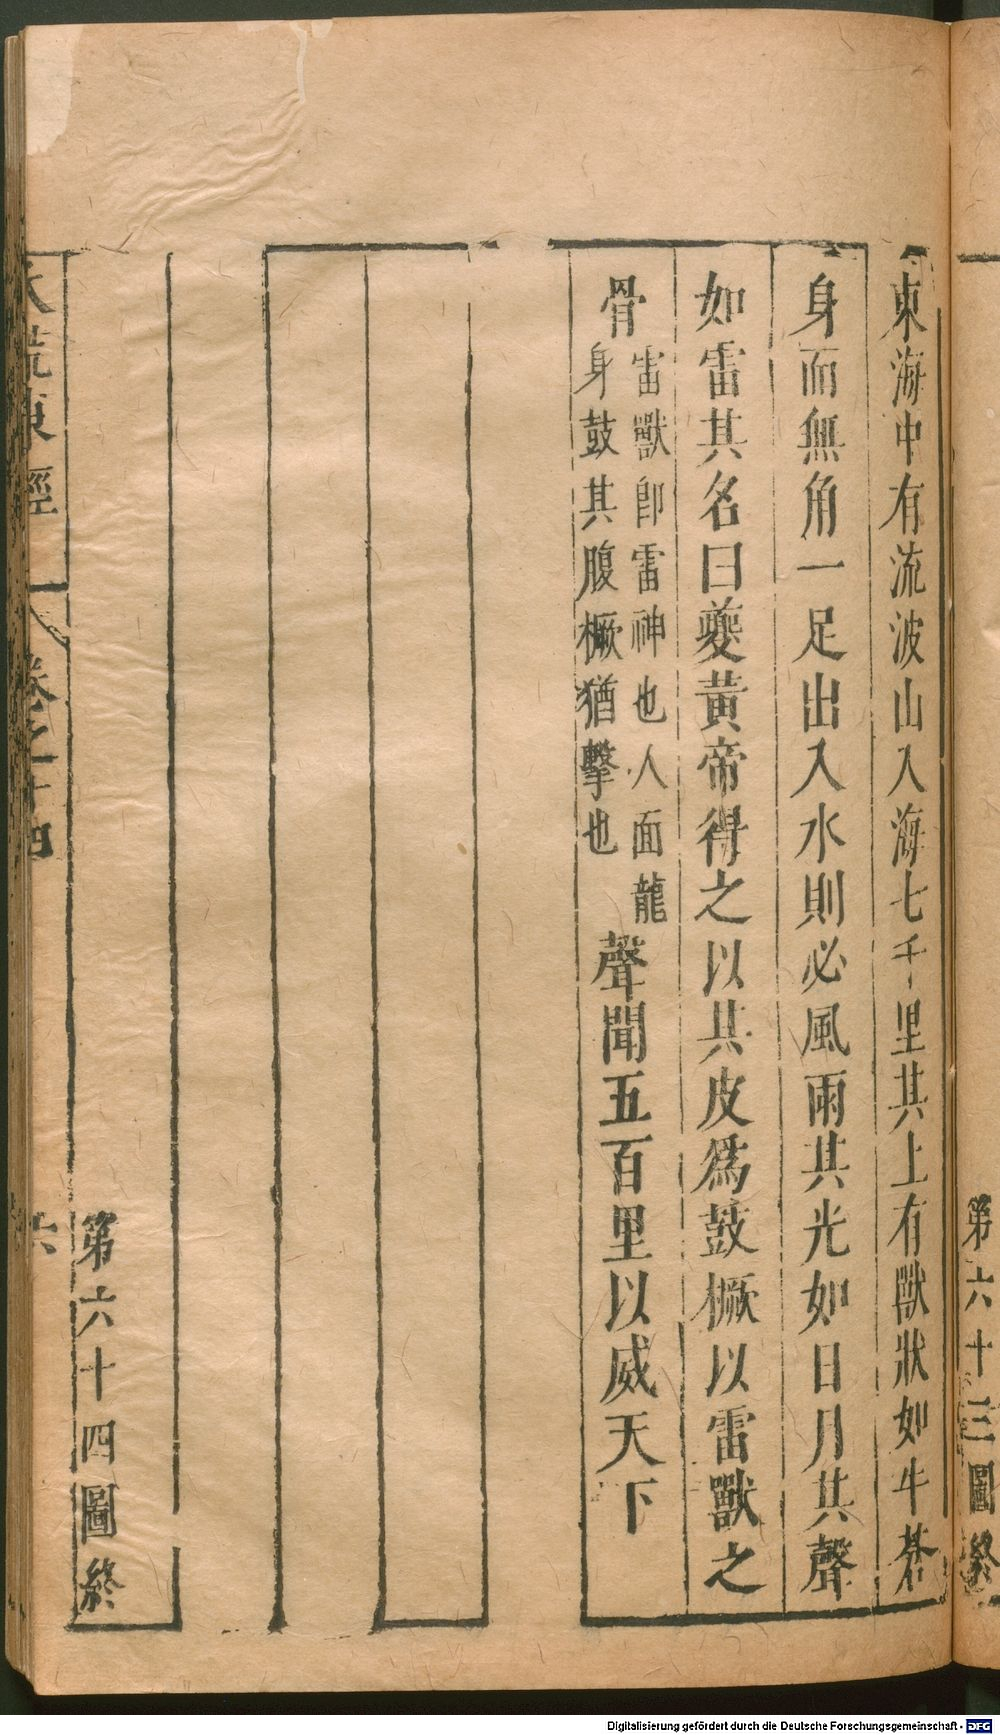 第六十三圖終
東海中有流波山入海七千里其上有獸狀如牛蒼
身而無角一足出入水則必風雨其光如日月其聲
如雷其名曰夔黃帝得之以其皮爲鼓橛以雷獸之
骨
雷獸卽雷神也人面龍
身鼓其腹橛猶擊也
聲聞五百里以威天下
第六十四圖終
大荒東經 卷之十四 六
Digitalisierung gefördert durch die Deutsche Forschungsgemeinschaft - DFG